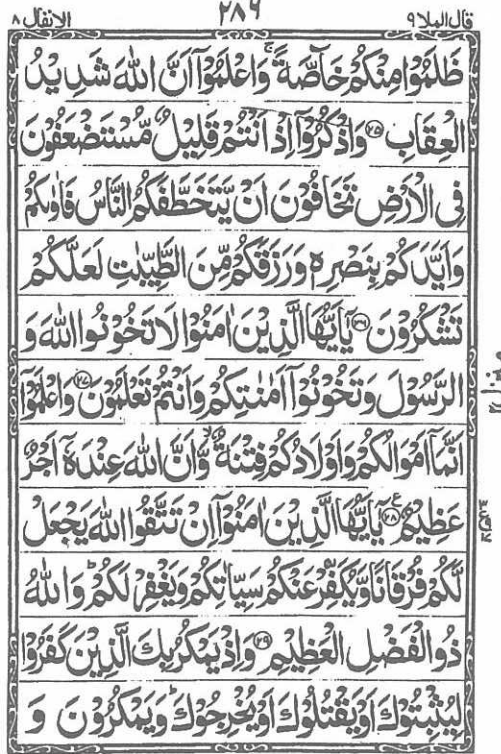 قال الملا ٩ ٢٨٦ الانفال ٨
ظَلَمُوْا مِنْكُمْ خَآصَّةً ۚ وَاعْلَمُوْۤا اَنَّ اللّٰهَ شَدِيْدُ
الْعِقَابِ ﴿۲۵﴾ وَاذْكُرُوْۤا اِذْ اَنْتُمْ قَلِيْلٌ مُّسْتَضْعَفُوْنَ
فِى الْاَرْضِ تَخَافُوْنَ اَنْ يَّتَخَطَّفَكُمُ النَّاسُ فَاٰوٰىكُمْ
وَاَيَّدَكُمْ بِنَصْرِهٖ وَرَزَقَكُمْ مِّنَ الطَّيِّبٰتِ لَعَلَّكُمْ
تَشْكُرُوْنَ ﴿۲۶﴾ يٰۤاَيُّهَا الَّذِيْنَ اٰمَنُوْا لَا تَخُوْنُوا اللّٰهَ وَ
الرَّسُوْلَ وَتَخُوْنُوْۤا اَمٰنٰتِكُمْ وَاَنْتُمْ تَعْلَمُوْنَ ﴿۲۷﴾ وَاعْلَمُوْۤا
اَنَّمَاۤ اَمْوَالُكُمْ وَاَوْلَادُكُمْ فِتْنَةٌ ۙ وَّاَنَّ اللّٰهَ عِنْدَهٗۤ اَجْرٌ
عَظِيْمٌ ﴿۲۸﴾ ع يٰۤاَيُّهَا الَّذِيْنَ اٰمَنُوْۤا اِنْ تَتَّقُوا اللّٰهَ يَجْعَلْ
لَّكُمْ فُرْقَانًا وَّيُكَفِّرْ عَنْكُمْ سَيِّاٰتِكُمْ وَيَغْفِرْ لَكُمْ ؕ وَاللّٰهُ
ذُو الْفَضْلِ الْعَظِيْمِ ﴿۲۹﴾ وَاِذْ يَمْكُرُ بِكَ الَّذِيْنَ كَفَرُوْا
لِيُثْبِتُوْكَ اَوْ يَقْتُلُوْكَ اَوْ يُخْرِجُوْكَ ؕ وَيَمْكُرُوْنَ وَ
منزل ٢